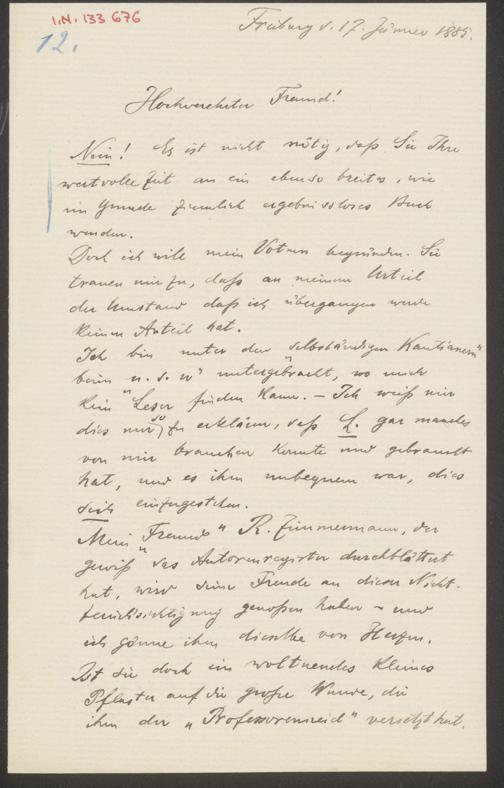 I.N. 133 676
12.
Freiburg d. 17. Jänner 1885.
Hochverehrter Freund!
Nein! Es ist nicht nötig, daß Sie Ihre
wertvolle Zeit an ein ebenso breites, wie
im Grunde ziemlich ergebnisloses Buch
wenden.
Doch ich will mein Votum begründen. Sie
trauen mir zu, daß an meinem Urteil
der Umstand daß ich übergangen werde
keinen Anteil hat.
Ich bin unter den „selbständigen Kantianern"
beim „u. s. w" untergebracht, wo mich
kein Leser finden kann. – Ich weiß mir
dies nur so zu erklären, daß L. gar manches
von mir brauchen konnte und gebraucht
hat, und es ihm unbequem war, dies
sich einzugestehen.
Mein „Freund" R. Zimmermann, der
gewiß das Autorenregister durchblättert
hat, wird seine Freude an dieser Nicht-
berücksichtigung genoßen haben – und
ich gönne ihm dieselbe von Herzen.
Ist sie doch ein woltuendes kleines
Pflaster auf die große Wunde, die
ihm der „Professorenneid" versetzt hat.